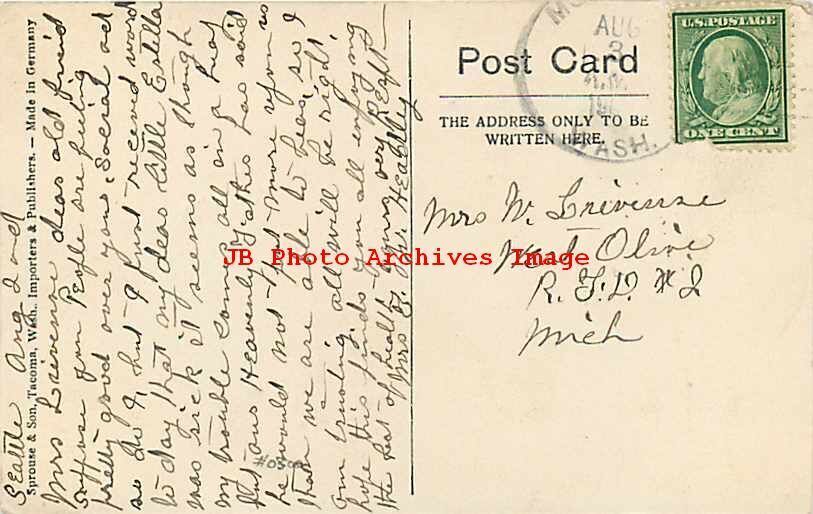 Seattle Aug 2nd
Mrs Livense dear old friend
suppose you People are feeling
pretty good over your Social act
so do I, but I just received word
to day that my dear little Estella
was sick it seems as though
my trouble comes all in a heap
But our Heavenly Father has said
he would not put more upon us
than we are able to bear, so I
am trusting all will be right,
hope this finds you all enjoying
the best of health yours very Resft
Mrs
Sprouse & Son, Tacoma, Wash., Importers & Publishers. — Made in Germany
#0500
Post Card
THE ADDRESS ONLY TO BE
WRITTEN HERE.
AUG
3
WASH.
U.S. POSTAGE
ONE CENT
Mrs W. Livense
West Olive
R. F. D. # 2
Mich
JB Photo Archives Image